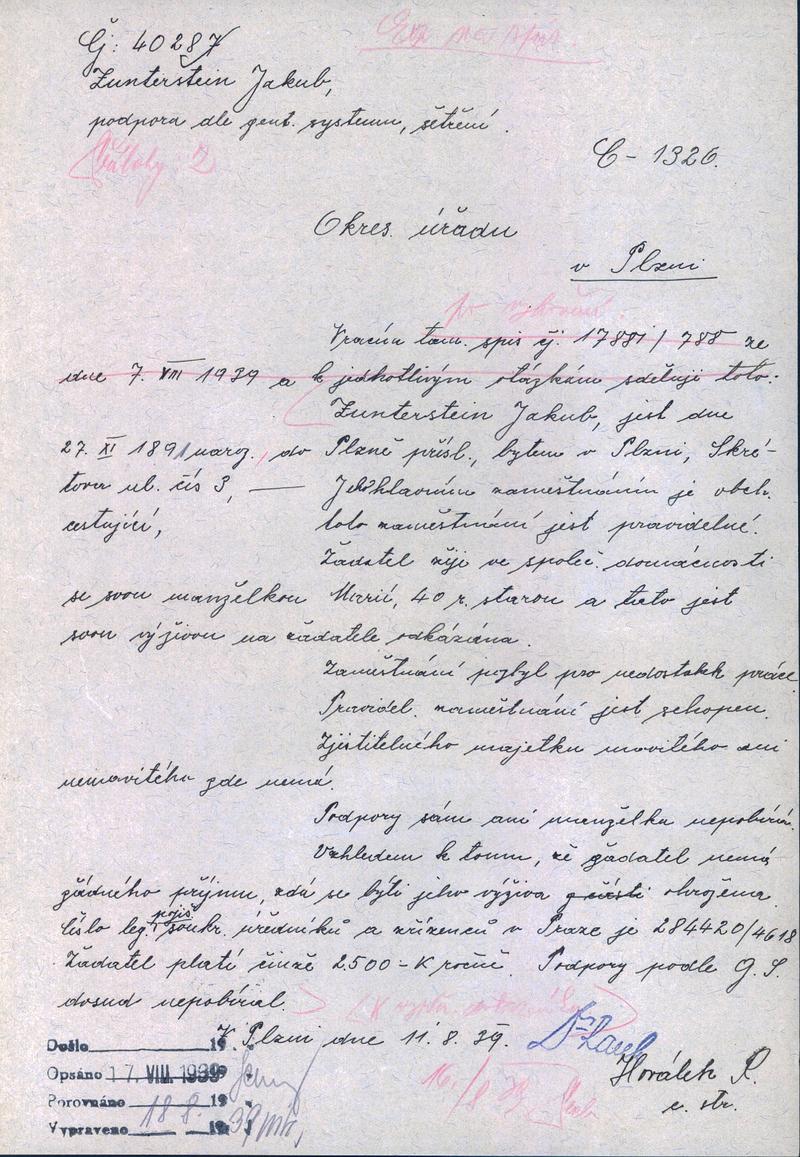 Čj: 40287
Zunterstein Jakub,
podpora dle gent. systemu, šetření.
Přílohy 2
C – 1326.
Okres. úřadu
v Plzni
Vracím tam. spis čj. 17881/788 ze
dne 7. VIII 1939 a k jednotlivým otázkám sděluji toto:
Zunterstein Jakub, jest dne
27. XI 1891 naroz., do Plzně přísl., bytem v Plzni, Skré-
tova ul. čís 3, — Jeho hlavním zaměstnáním je obch.
cestující, toto zaměstnání jest pravidelné.
Žadatel žije ve společ. domácnosti
se svou manželkou Marií, 40 r. starou a tato jest
svou výživou na žadatele odkázána.
Zaměstnání pozbyl pro nedostatek práce.
Pravidel. zaměstnání jest schopen.
Zjistitelného majetku movitého ani
nemovitého zde nemá.
Podpory sám ani manželka nepobírá.
Vzhledem k tomu, že žadatel nemá
žádného příjmu, zdá se býti jeho výživa z části ohrožena.
Číslo leg. pojiš. soukr. úředníků a zřízenců v Praze je 284420/4618
Žadatel platí činže 2.500 – K ročně. Podpory podle G. S.
dosud nepobíral.
V Plzni dne 11. 8. 39.
Horálek R.
c. str.
16./8 39
Došlo 19
Opsáno 17. VIII. 1939
Porovnáno 18 8. 19
Vypraveno 19